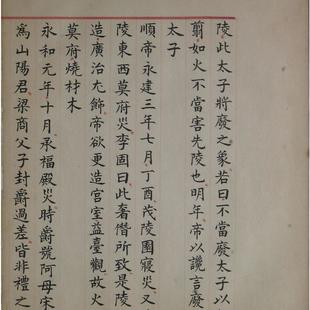 陵此太子將廢之象若曰不當廢太子以
翦如火不當害先陵也明年帝以讒言廢
太子
順帝永建三年七月丁酉茂陵園寢災又
陵東西莫府災李固曰此奢僭所致是陵
造廣治大飾帝欲更造宮室益臺觀故火
莫府燒材木
永和元年十月承福殿災時爵號阿母宋
為山陽君梁商父子封爵過差皆非禮之